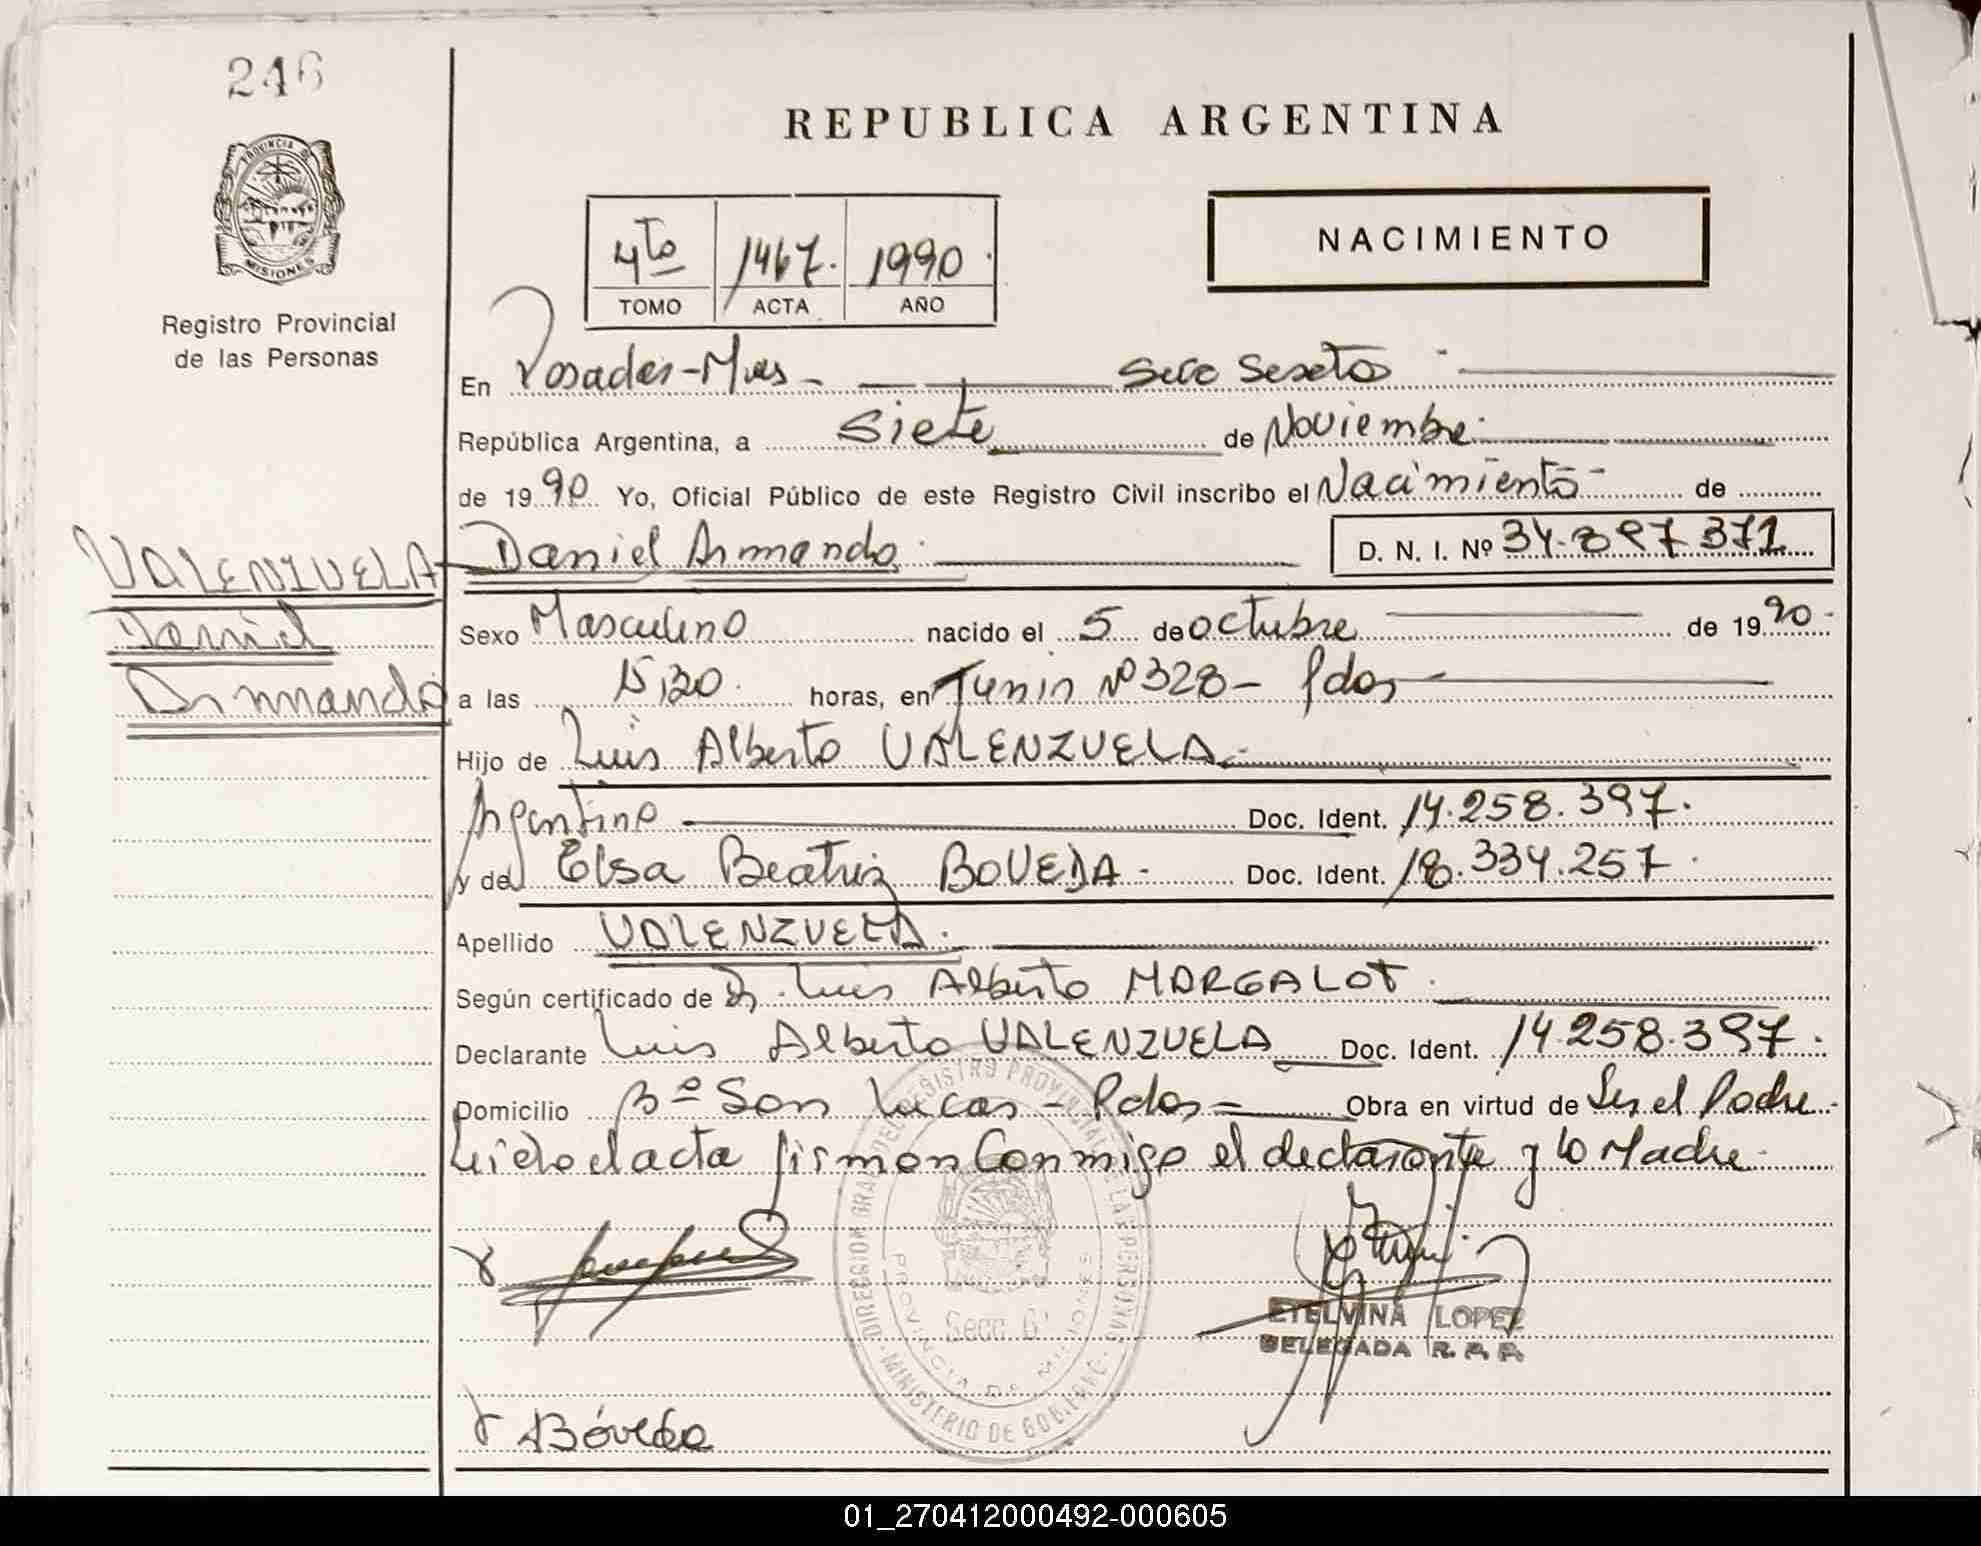 246
REPUBLICA ARGENTINA
PROVINCIA DE
MISIONES
Registro Provincial
de las Personas
NACIMIENTO
4to 1467. 1990.
TOMO ACTA AÑO
En Posadas-Mnes - Secc Sexta -
República Argentina, a Siete de Noviembre.
de 1990 Yo, Oficial Público de este Registro Civil inscribo el Nacimiento de
VALENZUELA Daniel Armando. D. N. I. Nº 34.897.371
Daniel
Armando
Sexo Masculino nacido el 5 de octubre de 1990.
a las 15,30. horas, en Junin Nº 328 - Pdas
Hijo de Luis Alberto VALENZUELA.
Argentino Doc. Ident. 14.258.397.
y de Elsa Beatriz BOVEDA - Doc. Ident. 18.334.257.
Apellido VALENZUELA.
Según certificado de Dr. Luis Alberto MARGALOT.
Declarante Luis Alberto VALENZUELA Doc. Ident. 14.258.397.
Domicilio Bº San Lucas - Pdas - Obra en virtud de Ser el Padre.
Leida el acta firman Conmigo el declarante y la Madre.
DIRECCION GRAL DEL REGISTRO PROVINCIAL DE LAS PERSONAS
PROVINCIA DE MISIONES
Secc. 6ª
MINISTERIO DE GOBIERNO
ETELVINA LOPEZ
DELEGADA R. P. P.
Bóveda
01_270412000492-000605